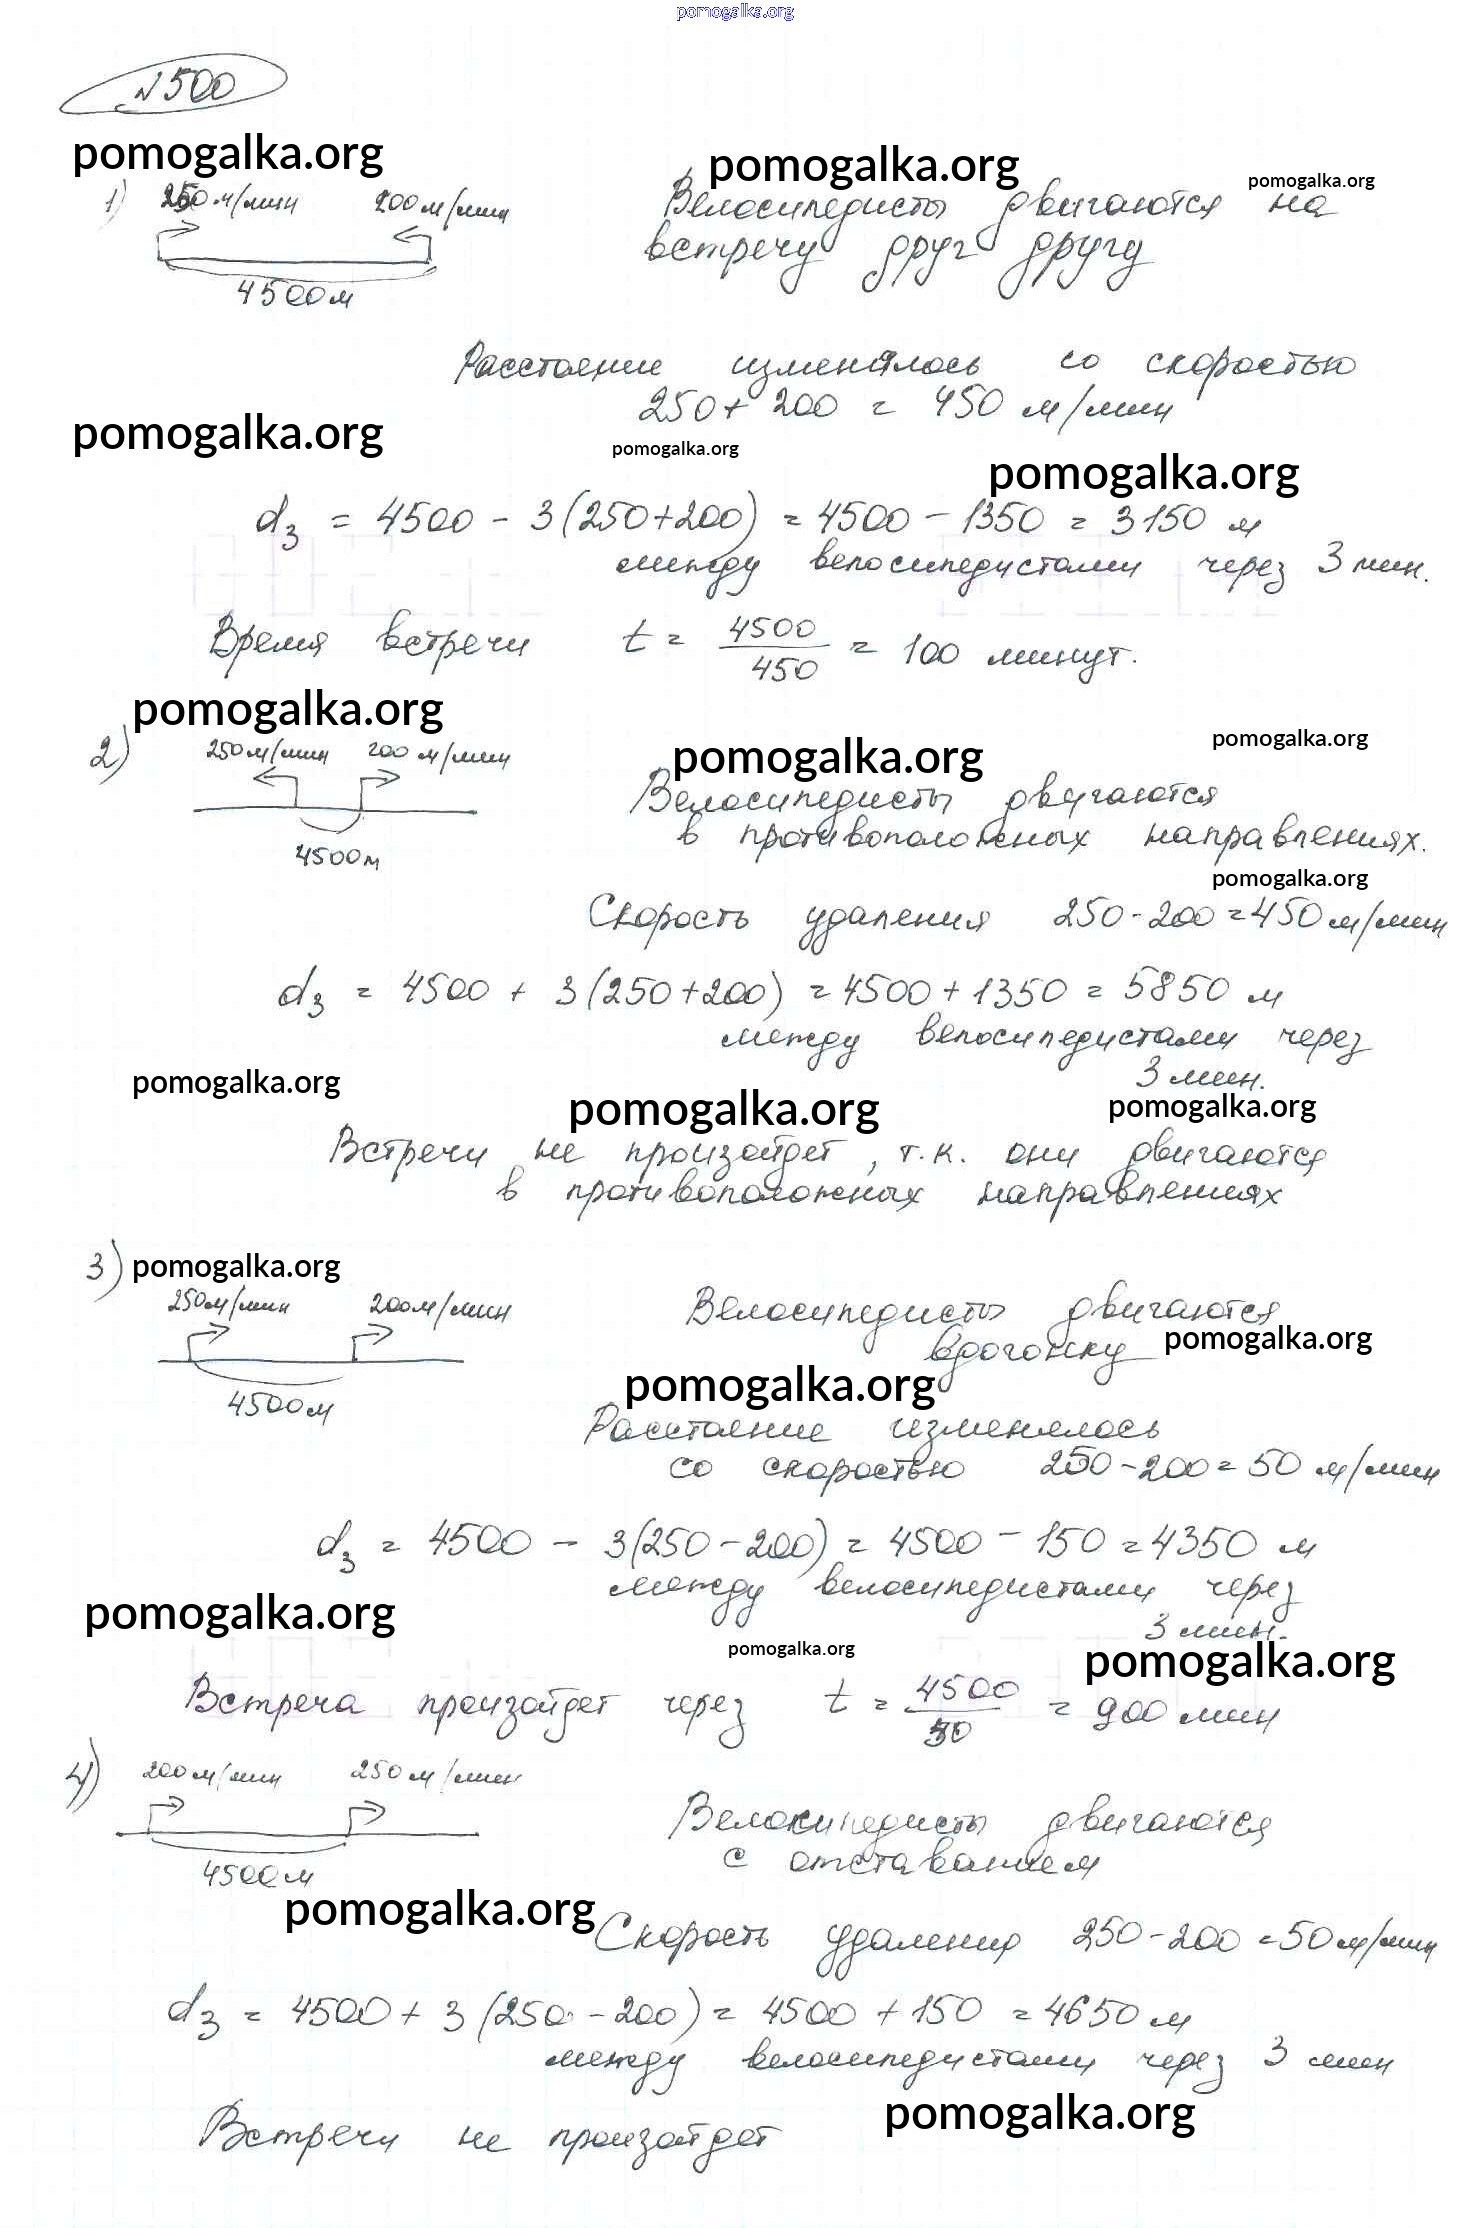 pomogalka.org
№500
pomogalka.org
pomogalka.org
pomogalka.org
1) 250 м/мин 200 м/мин
Велосипедисты двигаются на
встречу друг другу
4500 м
Расстояние изменялось со скоростью
250 + 200 = 450 м/мин
pomogalka.org
pomogalka.org
pomogalka.org
d3 = 4500 - 3(250+200) = 4500 - 1350 = 3150 м
между велосипедистами через 3 мин.
Время встречи t = 4500/450 = 100 минут.
pomogalka.org
pomogalka.org
pomogalka.org
2) 250 м/мин 200 м/мин
Велосипедисты двигаются
в противоположных направлениях.
4500 м
pomogalka.org
Скорость удаления 250 - 200 = 450 м/мин
d3 = 4500 + 3(250+200) = 4500 + 1350 = 5850 м
между велосипедистами через
3 мин.
pomogalka.org
pomogalka.org
pomogalka.org
Встречи не произойдет, т.к. они двигаются
в противоположных направлениях
3) pomogalka.org
250 м/мин 200 м/мин
Велосипедисты двигаются
вдогонку
pomogalka.org
pomogalka.org
4500 м
Расстояние изменялось
со скоростью 250 - 200 = 50 м/мин
d3 = 4500 - 3(250 - 200) = 4500 - 150 = 4350 м
между велосипедистами через
3 мин.
pomogalka.org
pomogalka.org
pomogalka.org
Встреча произойдет через t = 4500/50 = 900 мин
4) 200 м/мин 250 м/мин
Велосипедисты двигаются
с отставанием
4500 м
pomogalka.org
Скорость удаления 250 - 200 = 50 м/мин
d3 = 4500 + 3(250 - 200) = 4500 + 150 = 4650 м
между велосипедистами через 3 мин
pomogalka.org
Встречи не произойдет